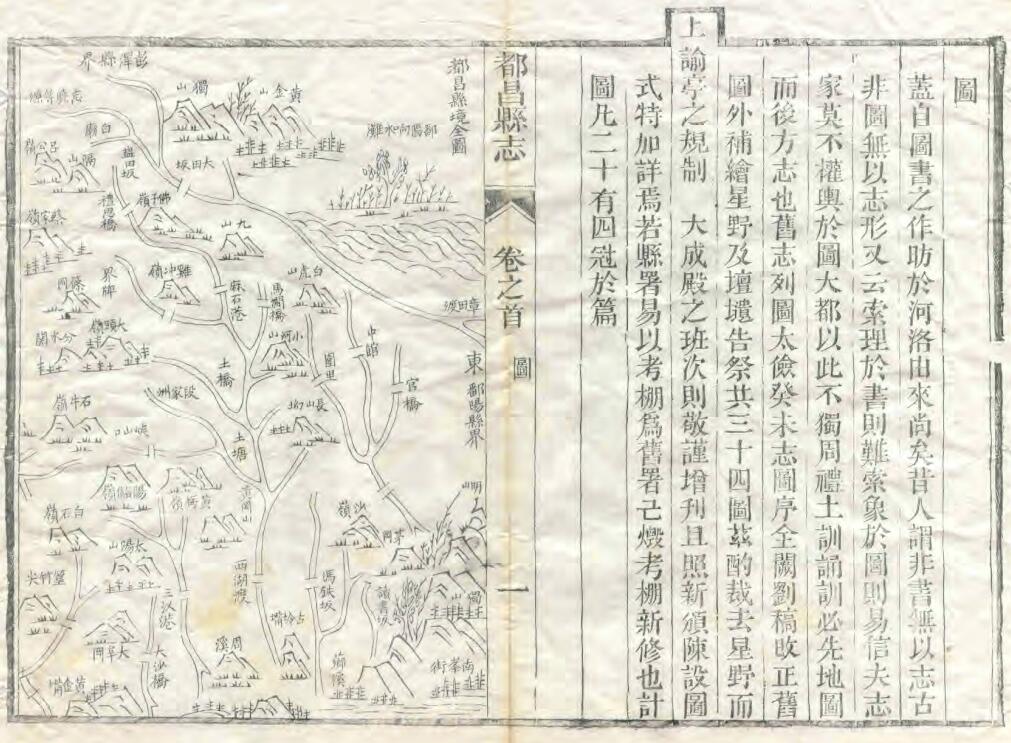 圖
蓋自圖書之作昉於河洛由來尚矣昔人謂非書無以志古
非圖無以志形又云索理於書則難索象於圖則易信夫志
家莫不權輿於圖大都以此不獨周禮土訓誦訓必先地圖
而後方志也舊志列圖太儉癸未志圖序全闕劉稿改正舊
圖外補繪星野及壇壝告祭共三十四圖茲酌裁去星野而
上諭亭之規制 大成殿之班次則敬謹增刋且照新頒陳設圖
式特加詳焉若縣署易以考棚爲舊署已燬考棚新修也計
圖凡二十有四冠於篇
都昌縣志 卷之首 圖 一
都昌縣境全圖
鄱陽向水灘
東
鄱陽縣界
章田渡
黃金山
獨山
彭澤縣界
大田坂
白廟
蘊田坂
禮恩橋
呂公嶺
陽山
佛子嶺
九山
蔡家嶺
界牌
雞冲嶺
蘇石港
白虎山
馬㵎橋
小河山
中館
官橋
圖里
大頭嶺
分水關
土橋
段家洲
長山
石牛嶺
峽山口
土塘
黃岡山
沙嶺
白石嶺
太陽山
西湖渡
馮鉄坂
讀書坂
三汊港
大沙橋
周溪
薌溪
南峯街
黃金嘴